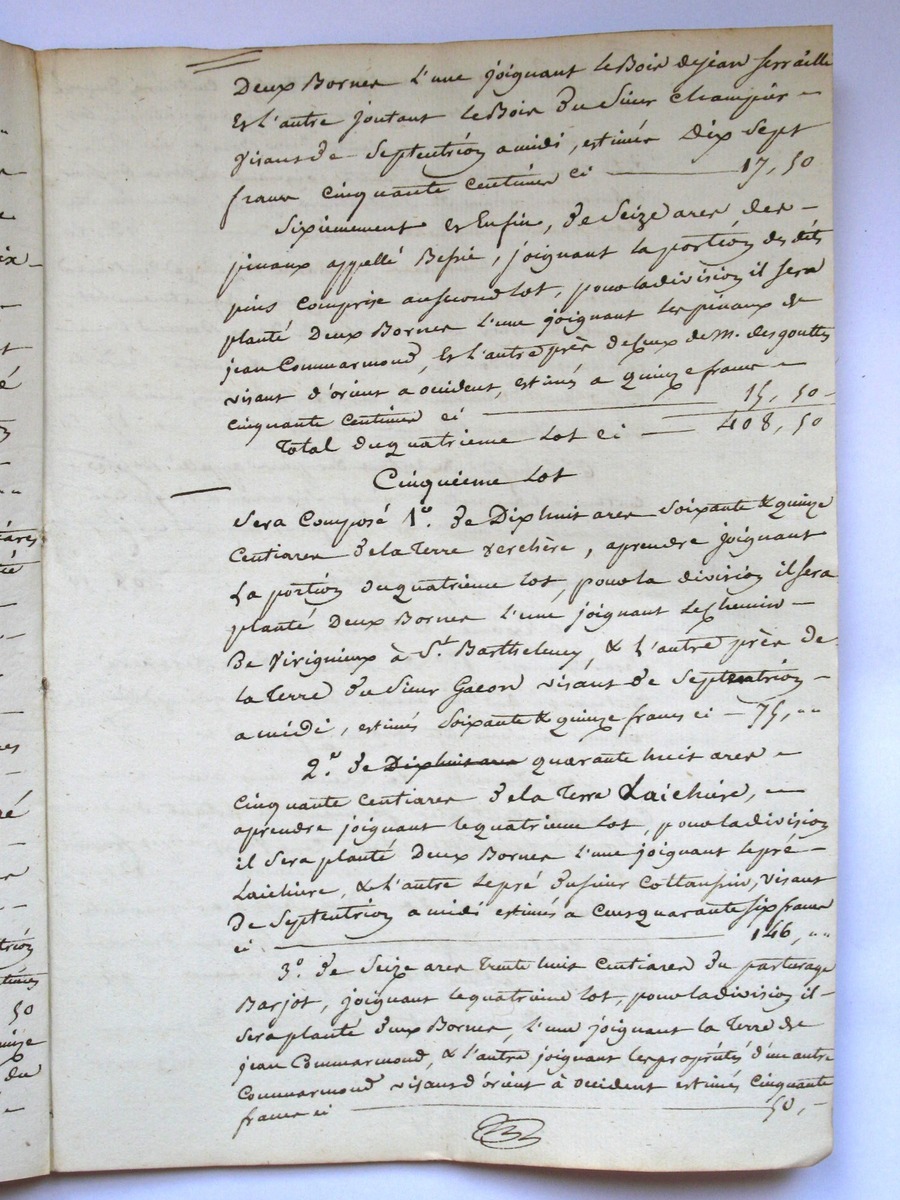 Deux Bornes l'une joignant le Bois de jean ferraille
Et l'autre joutant le Bois du Sieur Champier
visant de Septentrion a midi, estimés Dix Sept
francs cinquante centimes ci 17, 50
Sixiemement et Enfin, de Seize ares des
pinaux appellé Befsié, joignant la portion desdits
pins comprise au second lot, pour la division il sera
planté Deux Bornes l'une joignant les pinaux de
jean Commarmond, Et l'autre près de ceux de M. desgouttes
visant d'orient a occident, estimés a quinze francs
cinquante centimes ci 15, 50
Total du quatrieme Lot ci 408, 50
Cinquième Lot
Sera Composé 1o. de Dix huit ares Soixante & quinze
Centiares de la Terre verchère, aprendre joignant
La portion du quatrieme lot, pour la division il sera
planté Deux Bornes l'une joignant le Chemin
De Virignieux à St. Barthelemy & l'autre près de
la Terre du Sieur Gacon visant de Septentrion
a midi, estimés Soixante & quinze francs ci 75, ""
2o. de Dix huit ares quarante huit ares
cinquante centiares de la Terre Laichière,
aprendre joignant le quatrieme Lot, pour la division
il Sera planté Deux Bornes l'une joignant le pré
Laichière, & l'autre le pré du sieur visant
De Septentrion a midi estimés a Cent quarante six francs
ci 146, ""
3o. de Seize ares Trente huit centiares du pasturage
Barjot, joignant le quatrieme lot, pour la division il
sera planté deux Bornes, l'une joignant la Terre de
jean Commarmond, & l'autre joignant les propriétés d'un autre
Commarmond visant d'orient à occident estimés Cinquante
francs ci 50,
ix
t
é
ares
tié
ré
trion
times
50
quinze
du